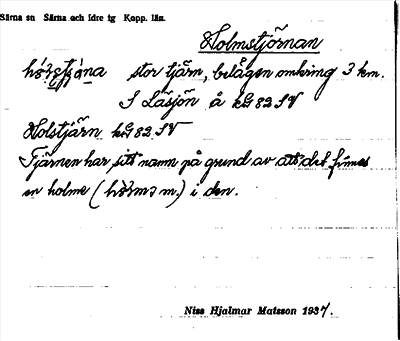 Särna sn Särna och Idre tg Kopp. län.
Holmstjörnan
stor tjärn, belägen omkring 3 km.
S Läsjön å kbl 82 SV
Holstjärn kbl 82 SV
Tjärnen har sitt namn på grund av att det finnes
en holme ( m.) i den.
Niss Hjalmar Matsson 1937.